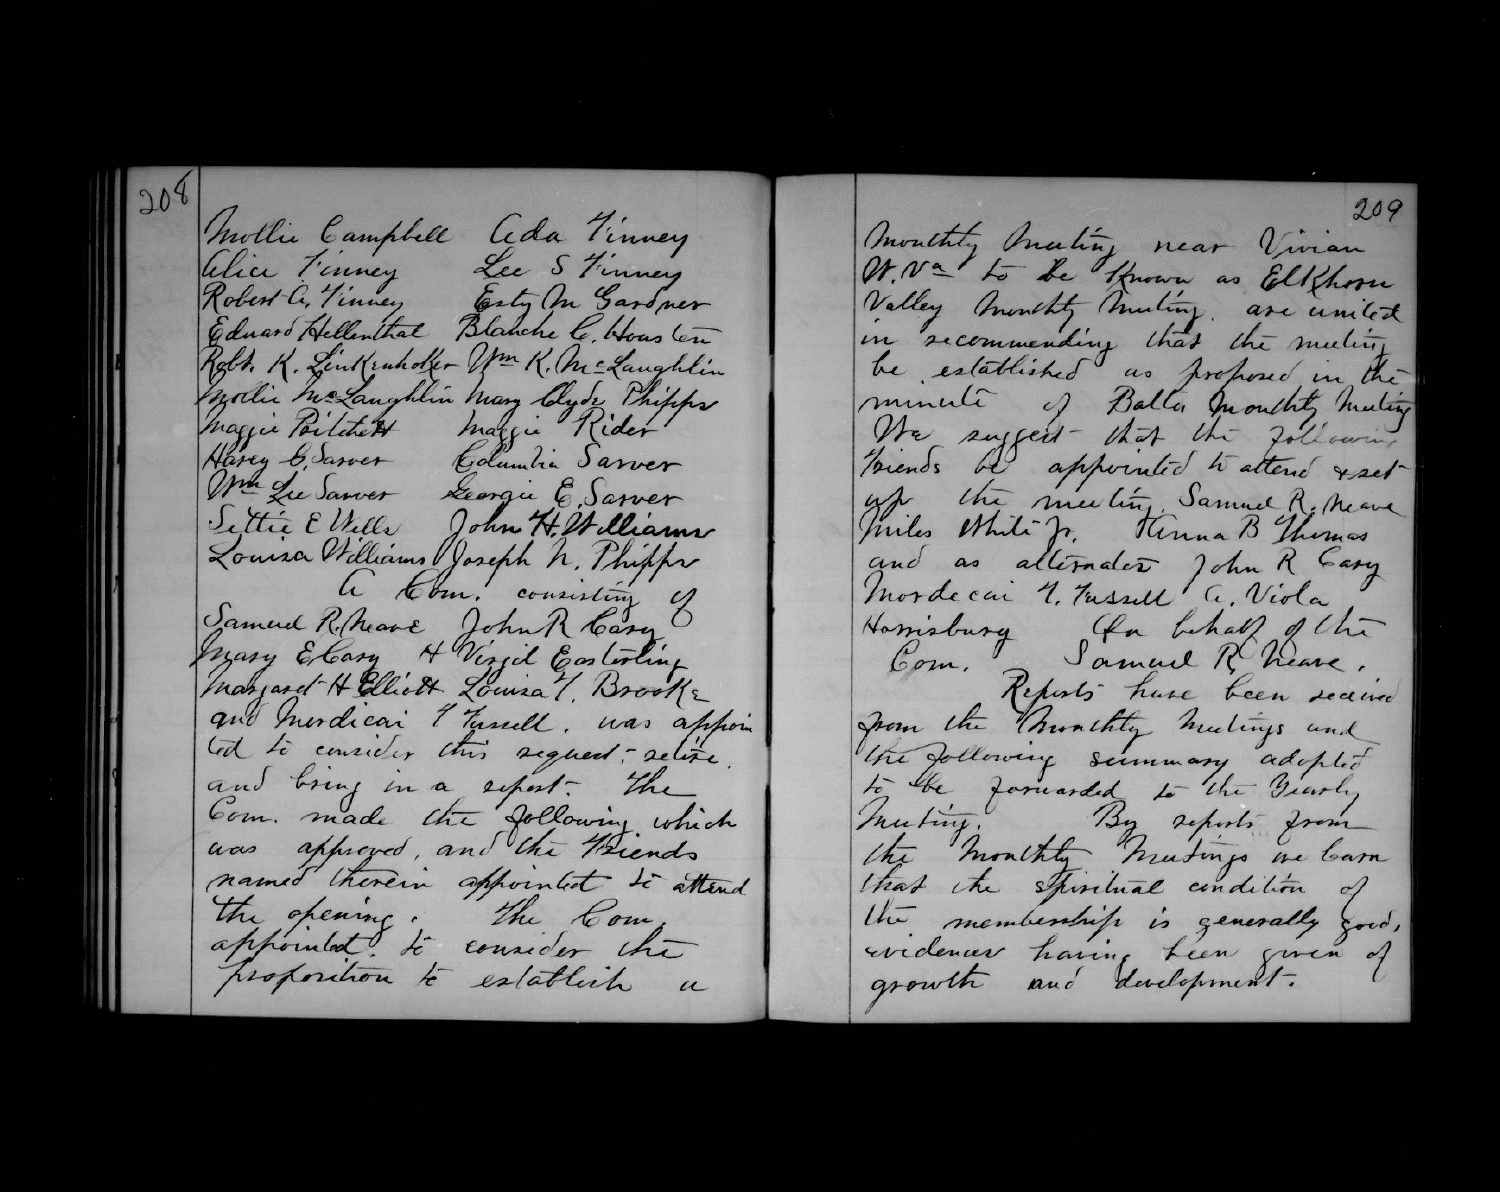 208
Mollie Campbell Ada Finney
Alice Finney Lee S Finney
Robert A. Finney Esty M Gardner
Edward Hellenthal Blanche C. Housten
Robt. K. Linkenhoker Wm K. McLaughlin
Mollie McLaughlin Mary Clyde Phipps
Maggie Pritchett Maggie Rider
Harey C. Sarver Columbia Sarver
Wm Lee Sarver Georgie E. Sarver
Settie E Wells John H. Williams
Louiza Williams Joseph N. Phipps
A Com. consisting of
Samuel R. Neave John R Cary
Mary E Cary H Virgil Easterling
Margaret H Elliott Louiza T. Brooke
and Mordicai T Fussell. was appoin
ted to consider this request, retire.
and bring in a report. The
Com. made the following which
was approved, and the Friends
named therein appointed to attend
the opening. The Com.
appointed to consider the
proposition to establish a
209
Monthly Meeting near Vivian
W. Va to be Known as ElKhorn
Valley Monthly Meeting. are united
in recommending that the meeting
be established as proposed in the
minute of Balto Monthly Meeting
We suggest that the following
Friends be appointed to attend & set
up the meeting Samuel R. Neave
Miles White Jr. Anna B Thomas
and as alternates John R Cary
Mordecai T. Fussell A. Viola
Horrisburg On behalf of the
Com. Samuel R. Neave.
Reports have been received
from the Monthly Meetings and
the following summary adopted
to be forwarded to the Yearly
Meeting. By reports from
the Monthly Meetings we learn
that the spiritual condition of
the membership is generally good,
evidences having been given of
growth and development.